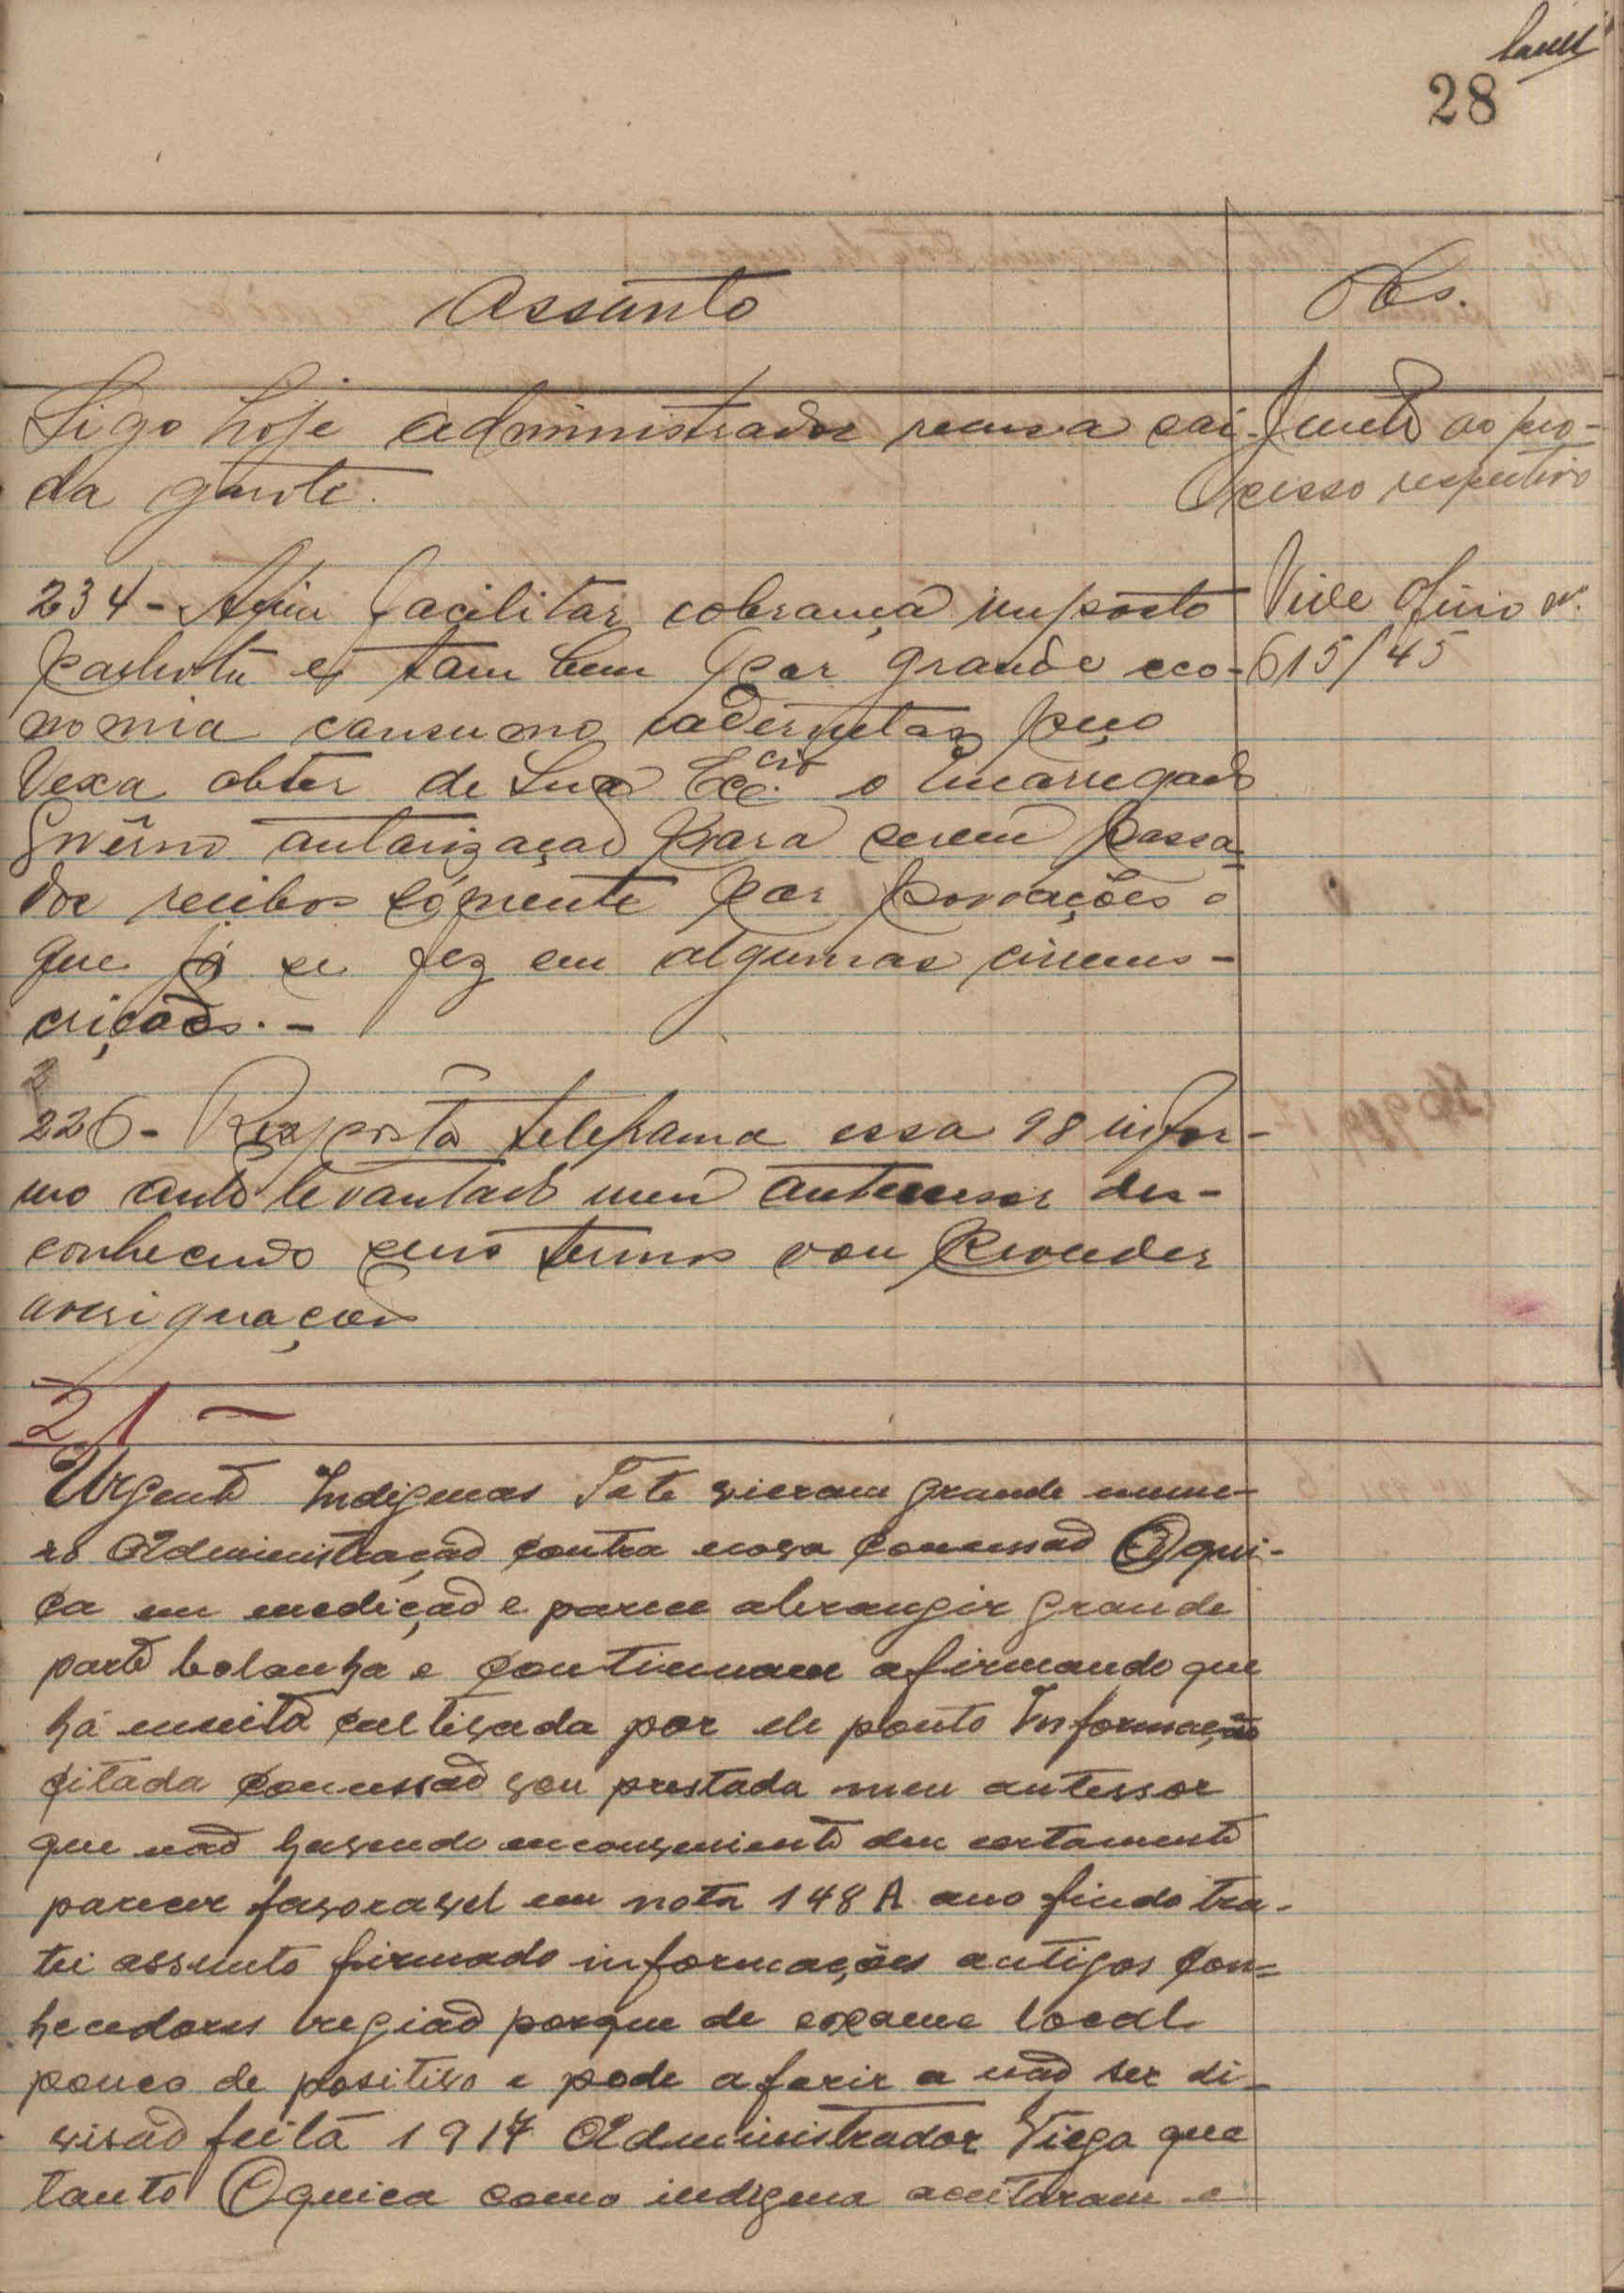 28
Assunto
Obs.
Sigo hoje administrador recusa saí-
da garote.
Junto ao pro-
cesso respectivo
234 - Afim facilitar cobrança imposto
palhota e tam bem por grande eco-
nomia consumo cadernetas peço
Vexa obter de Sua Exc.cia o Encarregado
Govêrno autorização para serem passa-
dos recibos sómente por povoações o
que já se fez em algumas circuns-
crições. -
Vide oficio nº.
615/45
2
226 - Resposta telegrama essa 98 infor-
mo auto levantado meu antecessor des-
conhecendo seus termos vou proceder
averiguações
21 -
Urgente Indigenas Tete vieram grande nume-
ro Administração contra nova concessão Oqui-
ca em medição e parece abrangir grande
parte bolanha e continuam afirmando que
há muito cultivada por ele ponto Informação
citada concessão vou prestada meu antessor
que não havendo inconveniente deu certamente
parecer favoravel em nota 148 A ano findo tra-
tei assunto firmado informações antigos con=
hecedores região porque de exame local
pouco de positivo e pode aferir a não ser di-
visão feita 1917 Administrador Viega que
tanto Oquica como indigena aceitaram e